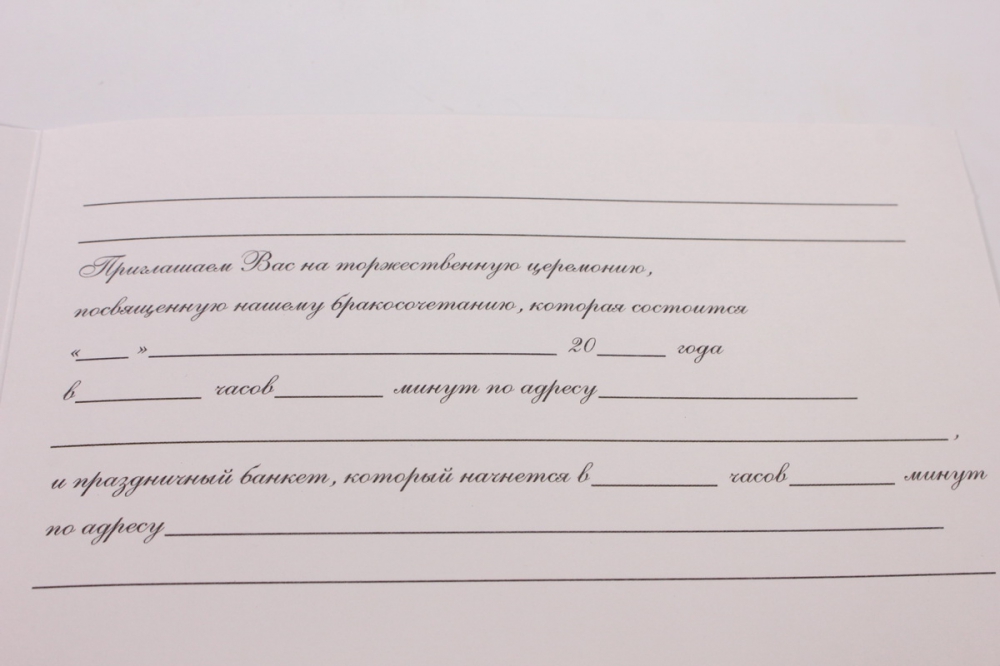 Приглашаем Вас на торжественную церемонию,
посвященную нашему бракосочетанию, которая состоится
«____ »______________________________ 20_____ года
в_________ часов________ минут по адресу___________________
__________________________________________________________________,
и праздничный банкет, который начнется в_________ часов________ минут
по адресу_________________________________________________________